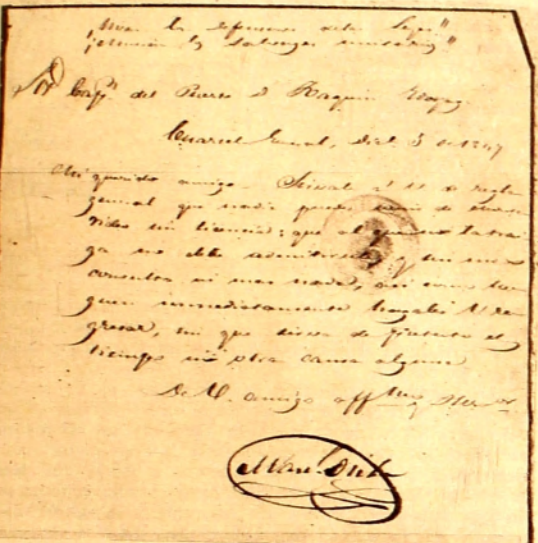 ¡Vivan los Defensores de las Leyes!!
¡Mueran los Salvages unitarios!!
Sr. Capn. del Puerto D.
Cuartel General, Dice. 5 de 1847
Mi querido amigo. Sirvale a V. de regla
general que nadie puede
sin licencia; que al que no la trai-
ga no debe admitirsele, y sin mas
consulta ni mas nada, asi como lle-
guen inmediatamente hagales V. re-
gresar, sin que sirva de pretesto el
tiempo ni otra causa alguna
De V. amigo affmo. y
Man.l Oribe